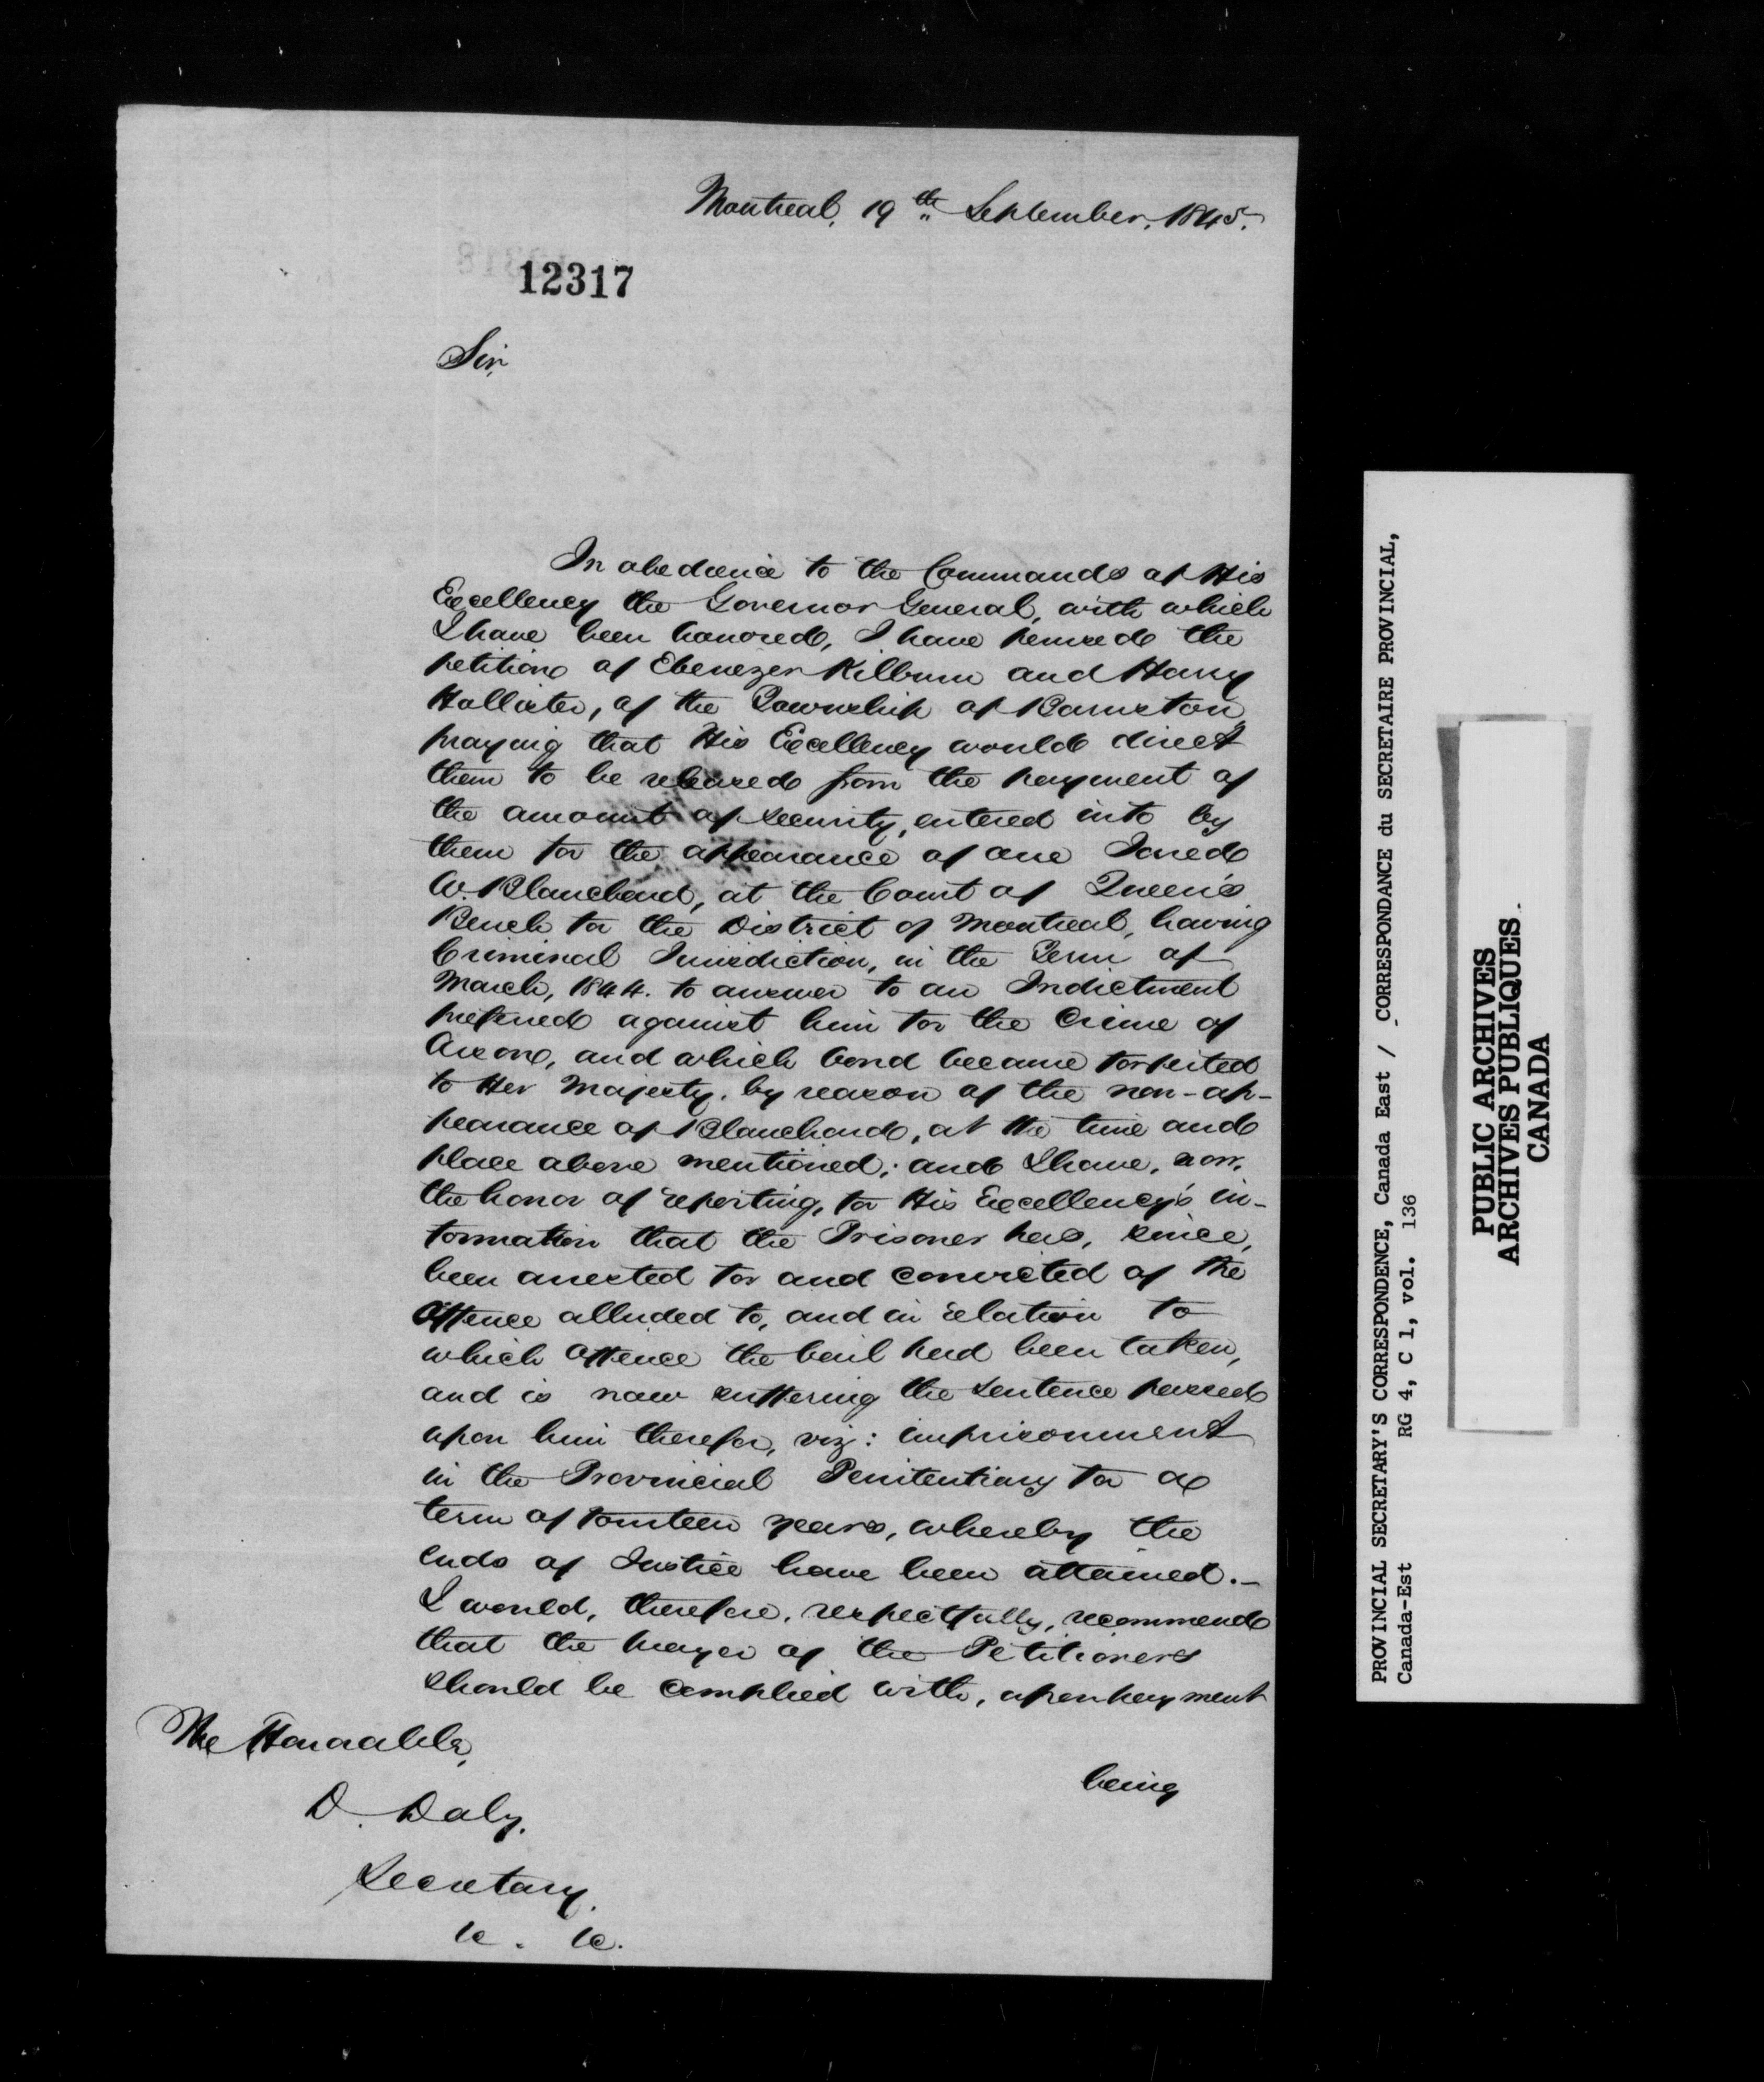 Montreal, 19th September, 1845.
12317
Sir,
In obedience to the Commands of His
Excellency the Governor General, with which
I have been honored, I have perused the
petition of Ebenezer Kilburn and Harry
Hollister, of the Township of Barnston,
praying that His Excellency would direct
them to be released from the payment of
the amount of security, entered into by
them for the appearance of one Jared
W. Blanchard, at the Court of Queen's
Bench for the District of Montreal, having
Criminal Jurisdiction, in the Term of
March, 1844. to answer to an Indictment
preferred against him for the Crime of
Arson, and which bond became forfeited
to Her Majesty, by reason of the non-ap-
pearance of Blanchard, at the time and
place above mentioned; and I have, now,
the honor of reporting, for His Excellency's in-
formation that the Prisoner has, since,
been arrested for and convicted of the
Offence alluded to, and in relation to
which offence the bail had been taken,
and is now suffering the sentence passed
upon him therefor, viz: imprisonment
in the Provincial Penitentiary for a
term of fourteen years, whereby the
ends of Justice have been attained.-
I would, therefore, respectfully, recommend
that the prayer of the Petitioners
should be complied with, upon payment
being
The Honorable,
D. Daly.
Secretary.
&c. &c.
PROVINCIAL SECRETARY'S CORRESPONDENCE, Canada East / CORRESPONDANCE du SECRETAIRE PROVINCIAL,
Canada-Est RG 4, C 1, vol. 136
PUBLIC ARCHIVES
ARCHIVES PUBLIQUES
CANADA